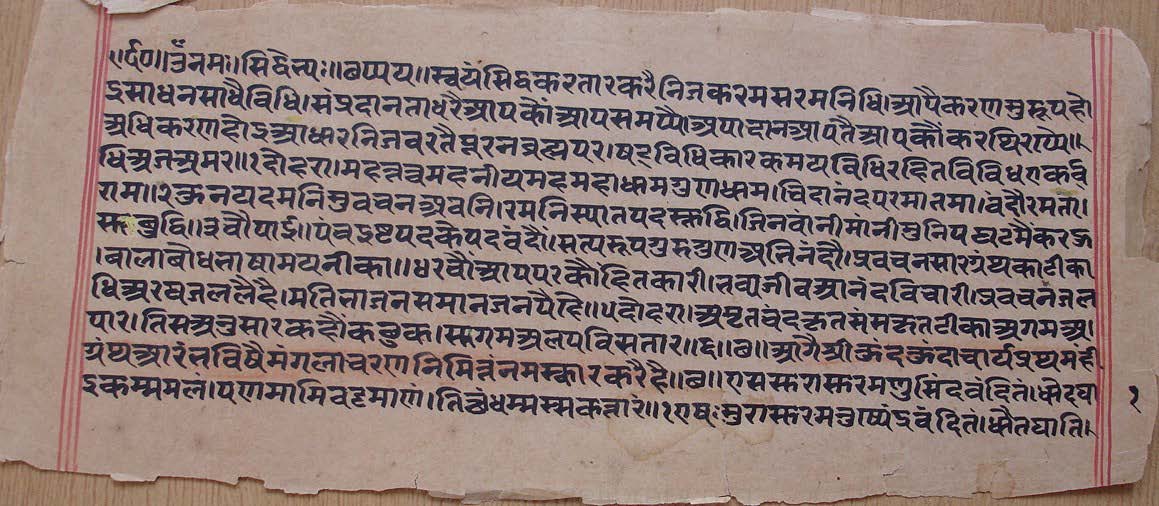 ॥र्द०॥ उँ नमः॥सिद्धेभ्यः॥छप्पय॥स्वयंसिद्धकरतारकरैनिजकरमसरमनिधि।आपैकरणसुरूपहो
इसाधनसाधैविधि।संप्रदानताधरैआपकौंआपसमप्पै।अपादानआपतैआपकौंकरथिरथप्पै॥
अधिकरणहोइआधारनिजवरतैपूरनब्रह्मपर।षटविधिकारकमयविधिरहितविविधएकवि
धिअजअमर॥१दोहरा।महतत्त्वमहनीयमहमहाधामगुणधाम।चिदानंदपरमातमा।वंदौंरमता।
राम॥२कुनयदमनिसुवचनअवनि।रमनिस्यातपदसुद्धि।जिनवांनीमांनीमुनिपघटमैकरऊ
सुबुद्धि॥३चौपाई॥पंचइष्टपदकेपदवंदौं।सत्यरूपगुरुगुणअभिनंदौं।प्रवचनसारग्रंथकीटीका
।बालाबोधभाषामयनीका॥४रचौंआपपरकौहितकारी।भव्यजीवआनंदविथारी।प्रवचनजल
धिअरथजललैहै।मतिभाजनसमानजनपैहै॥५दोहरा।अमृतचंदकृतसंसकृतटीकाअगमअ।
पार।तिसअनुसारकहौंकछुक।सुगमअलपविसतार॥६॥छ॥आगैश्रीकुंदकुंदाचार्यप्रथमही
ग्रंथआरंभविषैमंगलाचरणनिमित्तंनमस्कारकरैहै॥छ॥एससुरासुरमणुसिंदवंदितं।धोदघा
इकम्ममलं।पणमामिवड्ढमाणं।तित्थंधम्मस्सकत्तारं॥१एषःसुरासुरमनुष्येंद्रवंदितं।धौतघाति।
१